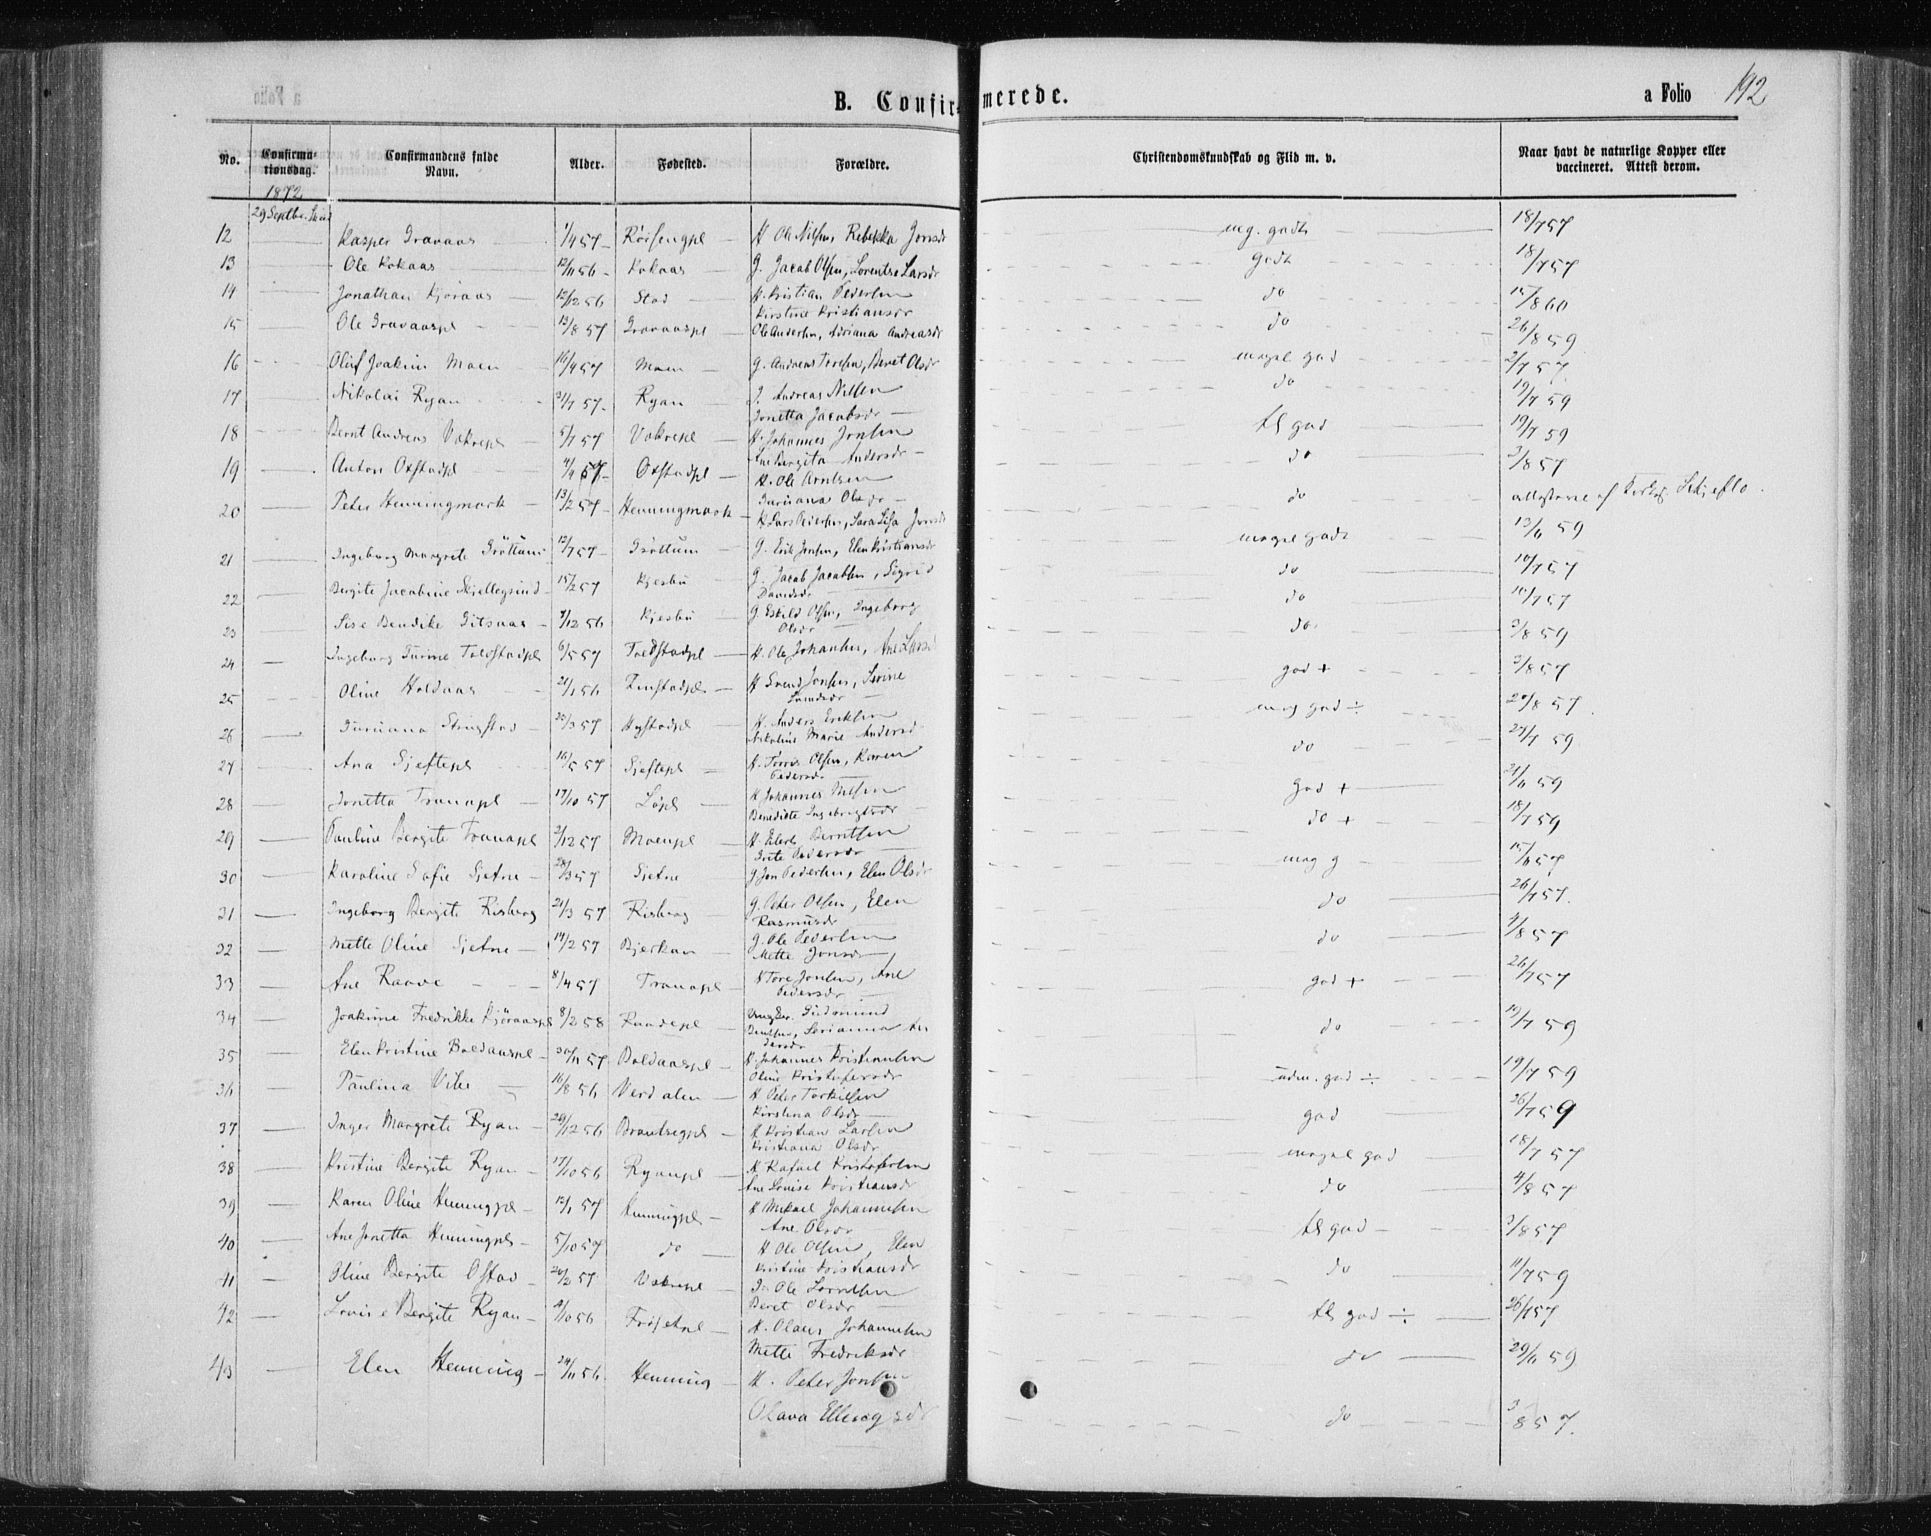 B. Confirmerede.
a Folio 192
No.
Confirmationsdag.
Confirmandens fulde Navn.
Alder.
Fødested.
Forældre.
Christendomskundskab og Flid m. v.
Naar havt de naturlige Kopper eller vaccineret. Attest derom.
1872
29 Septbr.
12 Kasper Gravaas 1/4 57 H Ole Nilsen, Rebekka Jonsdr meg. godt 18/7 57
13 Ole Kokaas 12/11 56 Kokaas G. Jacob Olsen, Lorentse Larsdr godt 18/7 57
14 Jonathan Kjøraas 12/12 56 Stod H. Kristian Pedersen do 15/8 60
Kirstine Kristiansdr
15 Ole Gravaaspl 13/8 57 Gravaaspl Ole Andersen, Adriana Andreasdr do 26/8 59
16 Oluf Joakim Moen 16/4 57 Moen G. Andreas Toresen, Beret Olsdr meget god 2/7 57
17 Nikolai Ryan 31/7 57 Ryan Andreas Nilsen do 19/7 59
Jonetta Jacobsdr
18 Bernt Andreas Vakrepl 5/7 57 Vakrepl H. Johannes Jonsen tl god 19/7 59
Ane Bergita Andersdr
19 Anton Oxstadpl 4/4 57 Oxstadpl H. Ole Arntsen do 3/8 57
Guruana Olsdr
20 Peter Henningmark 13/2 57 Henningmark H Lars Pedersen, Sara Lisa Jonsdr do
21 Ingeborg Margrete Grøttum 12/7 57 Grøttum G. Erik Jensen, Elen Kristiansdr meget godt 13/6 59
22 Bergite Jacobine 15/2 57 Kjesbu G. Jacob Jacobsen, Sigrid do 14/7 57
Davidsdr
23 Lise Bendike 7/12 56 Kjesbu G. Eskild Olsen, Ingeborg do 14/7 57
Olsdr
24 Ingeborg Gurine 6/5 57 H. Ole Johansen, Ane Larsdr do 3/8 59
25 Oline Holdaas 21/1 56 H Svend Jonsen, Serine god + 3/8 57
26 Guruana 22/3 57 H. Anders Eriksen meg god ÷ 20/8 57
Nikoline Marie Andersd
27 Ana Gjeftepl 16/5 57 Gjeftepl H. Tørris Olsen, Karen do 27/7 59
Pedersdr
28 Jonetta Tranapl 17/10 57 H Johannes Nilsen god + 21/6 59
Benedicte Ingebrigtsdr
29 Pauline Bergite Tranapl 2/12 57 Moenpl H. Eilert Berntsen do + 18/7 59
Grete Pedersdr
30 Karoline Sofie Gjetne 28/3 57 Gjetne G Jon Pedersen, Elen Olsdr meg g 15/6 57
31 Ingeborg Bergite Risberg 21/3 57 Risberg G. Peter Olsen, Elen do 26/7 57.
Rasmusdr
32 Mette Oline Gjetne 14/2 57 Bjerkan G. Ole Pedersen do 4/8 57
Mette Jonsdr
33 Ane Raave 8/4 57 Tranapl H Tore Jonsen, Ane god + 26/7 57
Pedersdr
34 Joakime Fredrikke Kjøraaspl 8/2 58 Gudmund do 19/7 59
35 Elen Kristine Boldaaspl 30/11 57 Boldaaspl H. Johannes Kristiansen
Oline Kristofersdr
36 Paulina Vibe 16/8 56 Verdalen H Peter Torkilsen udm. god ÷ 19/7 59
Kirstina Olsdr
37 Inger Margrete Ryan 29/12 56 H Kristian Larsen god 26/7 59
Kristiana Olsdr
38 Kristine Bergite Ryan 17/10 56 Ryanpl H Rafael Kristofersen meget god 18/7 57
Ane Lovise Kristiansdr
39 Karen Oline Henningpl 12/1 57 Henningpl H Mikael Johannesen do 4/8 57
Ane Olsdr
40 Ane Jonetta Henningpl 5/10 57 do H Ole Olsen, Elen tl god 3/8 57
Kristine Kristiansdr
41 Oline Bergite Østad 20/2 57 Vakrepl Ole Lorntsen do 11/7 59
Beret Olsdr
42 Lovise Bergite Ryan 9/10 56 Frøsetpl H. Olaus Johannesen tl god ÷ 26/7 57
Mette Fredriksdr do 29/6 59
43 Elen Henning 24/11 56 Henning H. Peter Jonsen
Olava Ellingsdr do 3/8 57.